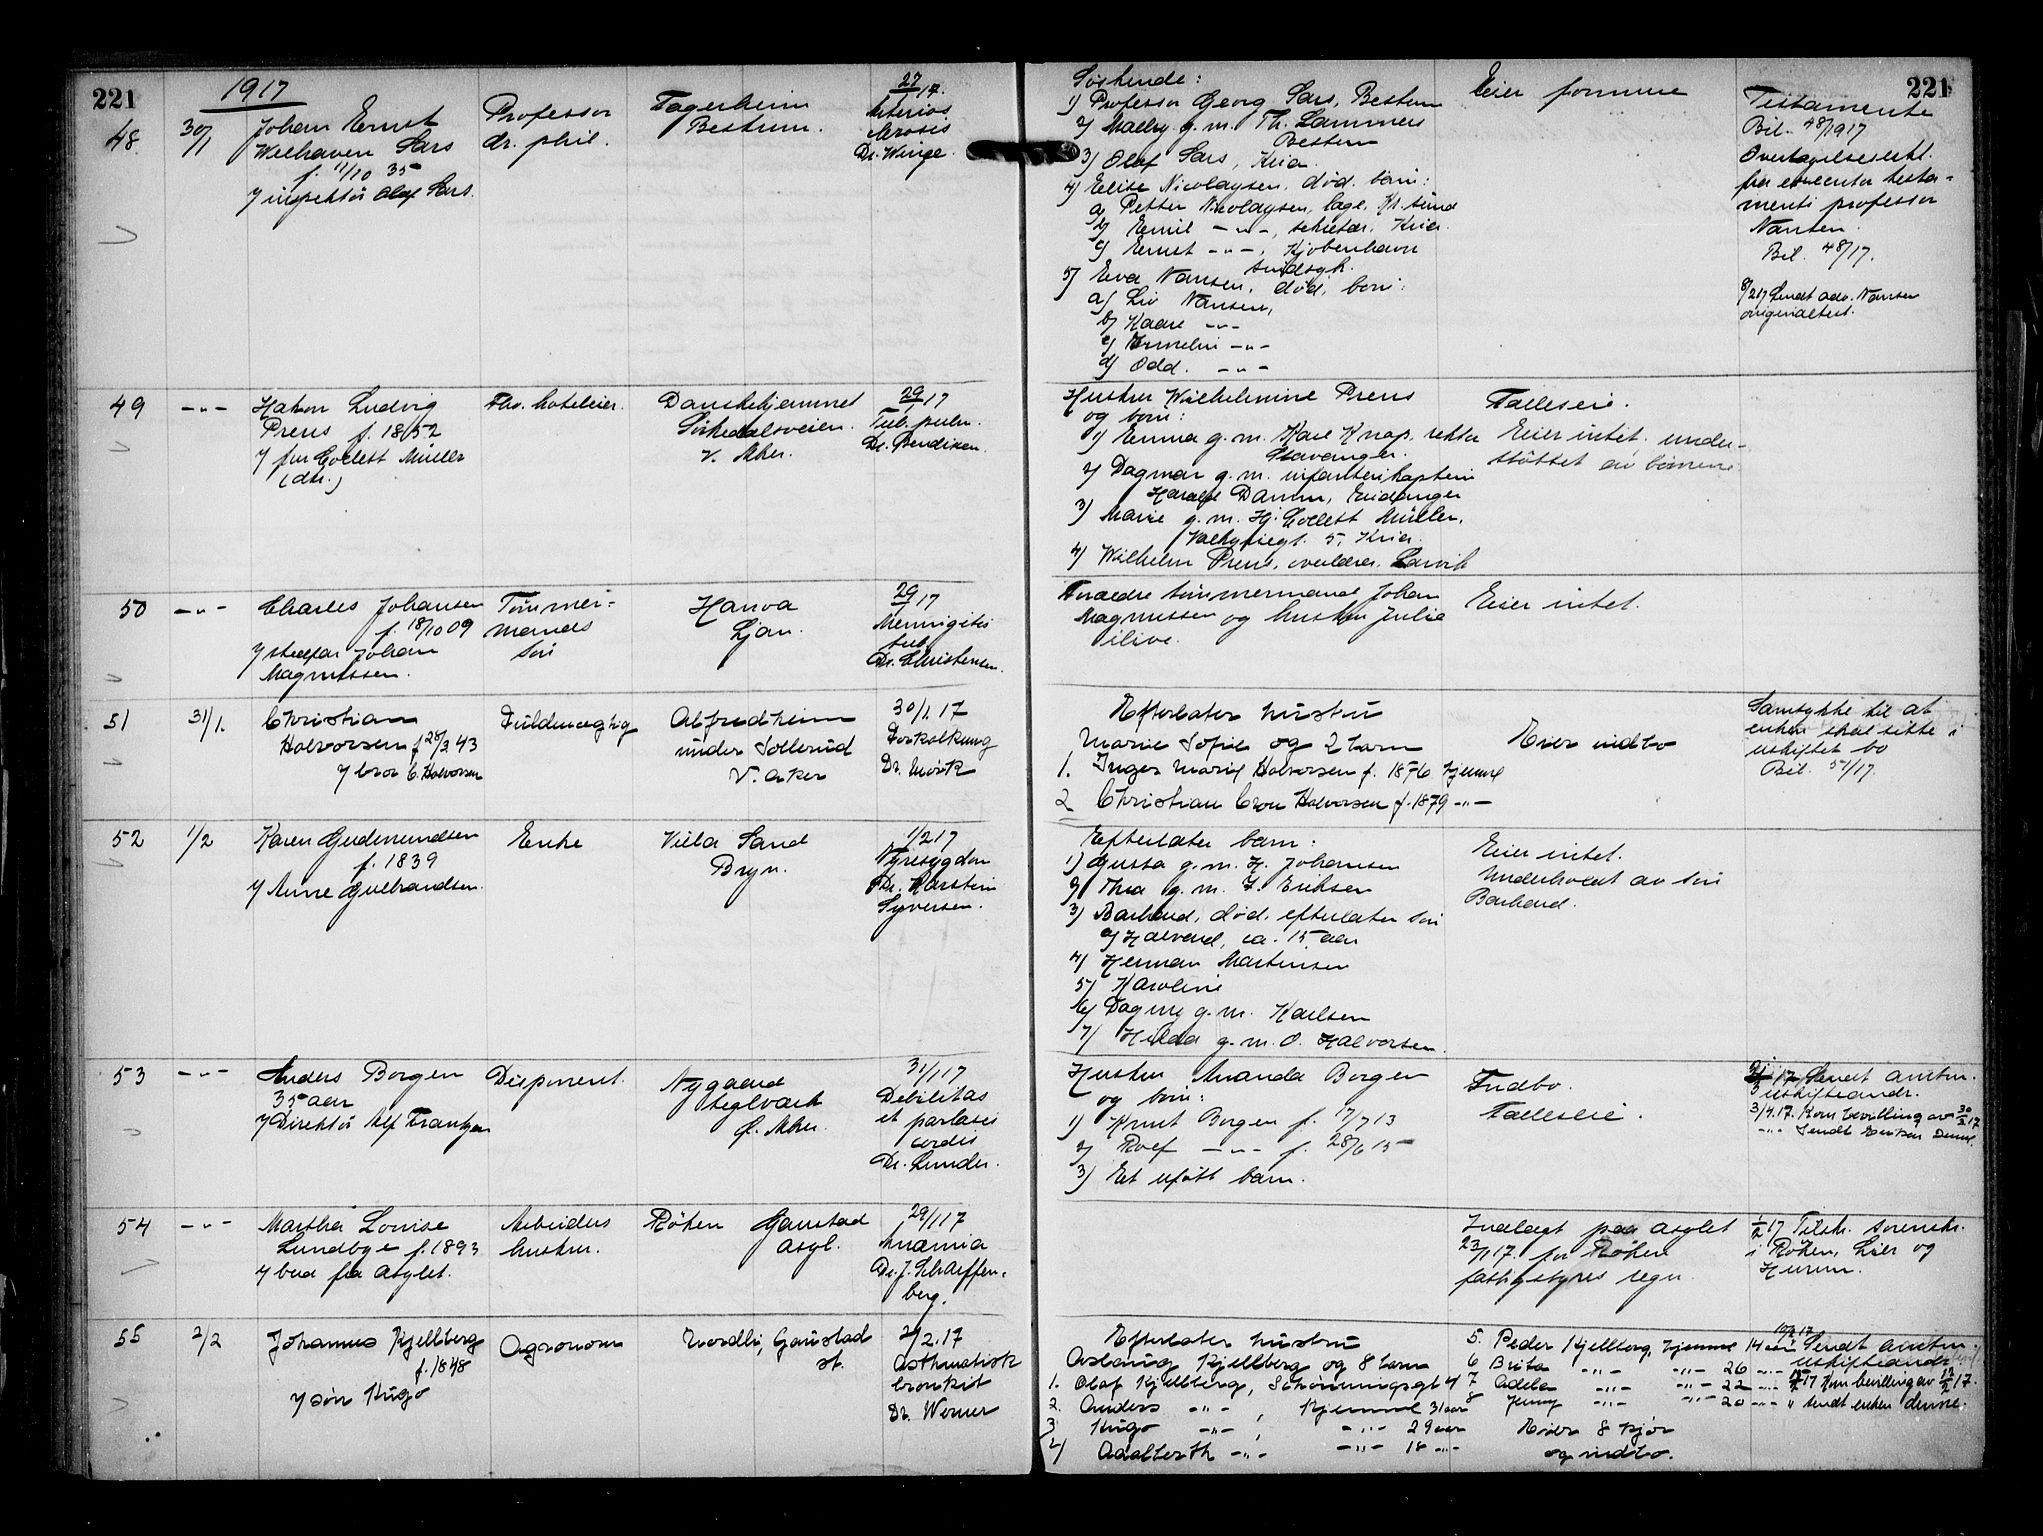 221
1917
48.
30/1
Johan Ernst
Welhaven Sars
f. 11/10 35
v/ inspektör Olaf Sars.
Professor
dr. phil.
Fagerheim
Bestum.
27/1 17.
Arterios
kerosis
Dr. Winge.
Söskende:
1) Professor Georg Sars, Bestum
2) Mally g. m. Th. Lammers
Bestum
3) Olaf Sars, Kria
4) Elise Nicolaysen, död. barn:
a) Petter Nicolaysen, læge, Kr. sund
b) Emil -"-, sekretær, Kria.
c) Ernst -"-, Kjöbenhavn
sindsyk.
5) Eva Nansen, död, barn:
a) Liv Nansen,
b) Kaare -"-
c) Irmelin -"-
d) Odd. -"-
Eier formue
221
Testamente
Bil. 48/1917
Overtagelseserkl.
fra executor testa-
menti professor
Nansen.
Bil. 48/17.
8/2 17 Sendt adv. Nansen
originaltest.
49
-"-
Hakon Ludvig
Preus f. 1852
v/ fru Collett Müller
(dtr.)
Fhv. hoteleier.
Danskehjemmet
Sörkedalsveien.
V. Aker.
29/1 17
Tub. pulm.
Dr. Bendixen.
Hustru Wilhelmine Preus
og barn:
1) Emma g. m. Karl Knap, rektor
Stavanger.
2) Dagmar g. m. infanterikaptein
Harald Damm, Eidanger
3) Marie g. m. Hj. Collett Müller,
Valkyriegt. 5. Kria.
4) Wilhelm Preus, overlærer, Larvik
Fælleseie.
Eier intet, under-
stöttet av börnene
50
-"-
Charles Johansen
f. 18/10 09
v/ stedfar Johan
Magnussen.
Tömmer-
mands
sön
Hanva
Ljan.
29/1 17
Meningitis
tub.
Dr. Christensen.
Forældre tömmermand Johan
Magnussen og hustru Julie
ilive.
Eier intet.
51
31/1.
Christian
Halvorsen f. 28/3 43
v/ bror C. Halvorsen
Fuldmægtig
Alfredheim
under Sollerud
V. Aker
30/1. 17
Forkalkning
Dr. Mörk
Efterlater hustru
Marie Sofie og 2 barn
1. Inger Marie Halvorsen f. 1876 hjemme
2 Christian Cron Halvorsen f. 1879 -"-
Eier indbo
Samtykke til at
enken skal sitte i
uskiftet bo
Bil. 51/17.
52
1/2
Karen Gudmundsen
f. 1839
v/ Anne Gulbrandsen.
Enke
Villa Sand
Bryn.
1/2 17
Nyresygdom
Dr. Karstein
Syversen.
Efterlater barn:
1) Gusta g. m. H. Johansen
2) Thea g. m. F. Eriksen
3) Barhard, död, efterlater sön
a) Halvard, ca. 15 aar
4) Herman Martinsen
5) Karoline
6) Dagny g. m. Karlsen
7) Hilda g. m. O. Halvorsen.
Eier intet.
Underholdt av sön
Barhard.
53
-"-
Anders Borgen
35 aar
v/ Direktör Alf Frantzen
Disponent.
Nygaard
teglverk
Ö. Aker.
31/1 17
Debilitas
et paralasis
cordis
Dr. Lunder.
Hustru Amanda Borgen
og barn:
1) Knut Borgen f. 17/7 13
2) Rolf -"- f. 28/6 15
3) Et ufött barn.
Indbo.
Fælleseie.
2/3 17 Sendt amtm.
uskifteandr.
3/4. 17. Kom bevilling av 30/3 17
-"- Sendt Enken denne.
54
-"-
Martha Louise
Lundbye f. 1893
v/ bud fra asylet.
Arbeiders
hustru.
Röken
Gaustad
asyl.
29/1 17
Anæmia
Dr. J. Scharffen-
berg.
Indlagt paa asylet
23/1 17. for Röken
fattigstyres regn.
1/2 17 Tilskr. sorenskr.
i Röken, Lier og
Hurum.
55
2/2
Johannes Kjellberg
f. 1848
v/ sön Hugo
Agronom
Nordli, Gaustad
st.
2/2. 17
Asthmatisk
bronkit
Dr. Werner
Efterlater hustru
Aslaug Kjellberg og 8 barn
1. Olaf Kjellberg, Schönningsgt 4
2. Anders -"-, hjemme 31 aar
3 Hugo -"-, -"- 29 aar
4) Adalberth -"- -"- 18 -"-
5. Peder Kjellberg, hjemme 14 aar
6 Brita -"- -"- 26 -"-
7 Adele -"- -"- 22 -"-
8 Jenny -"- -"- 20 -"-
Eier 8 kjör
og indbo.
Sendt amtm.
uskifteandr.
17 Kom bevilling av 12/2 17.
" sendt enken denne.